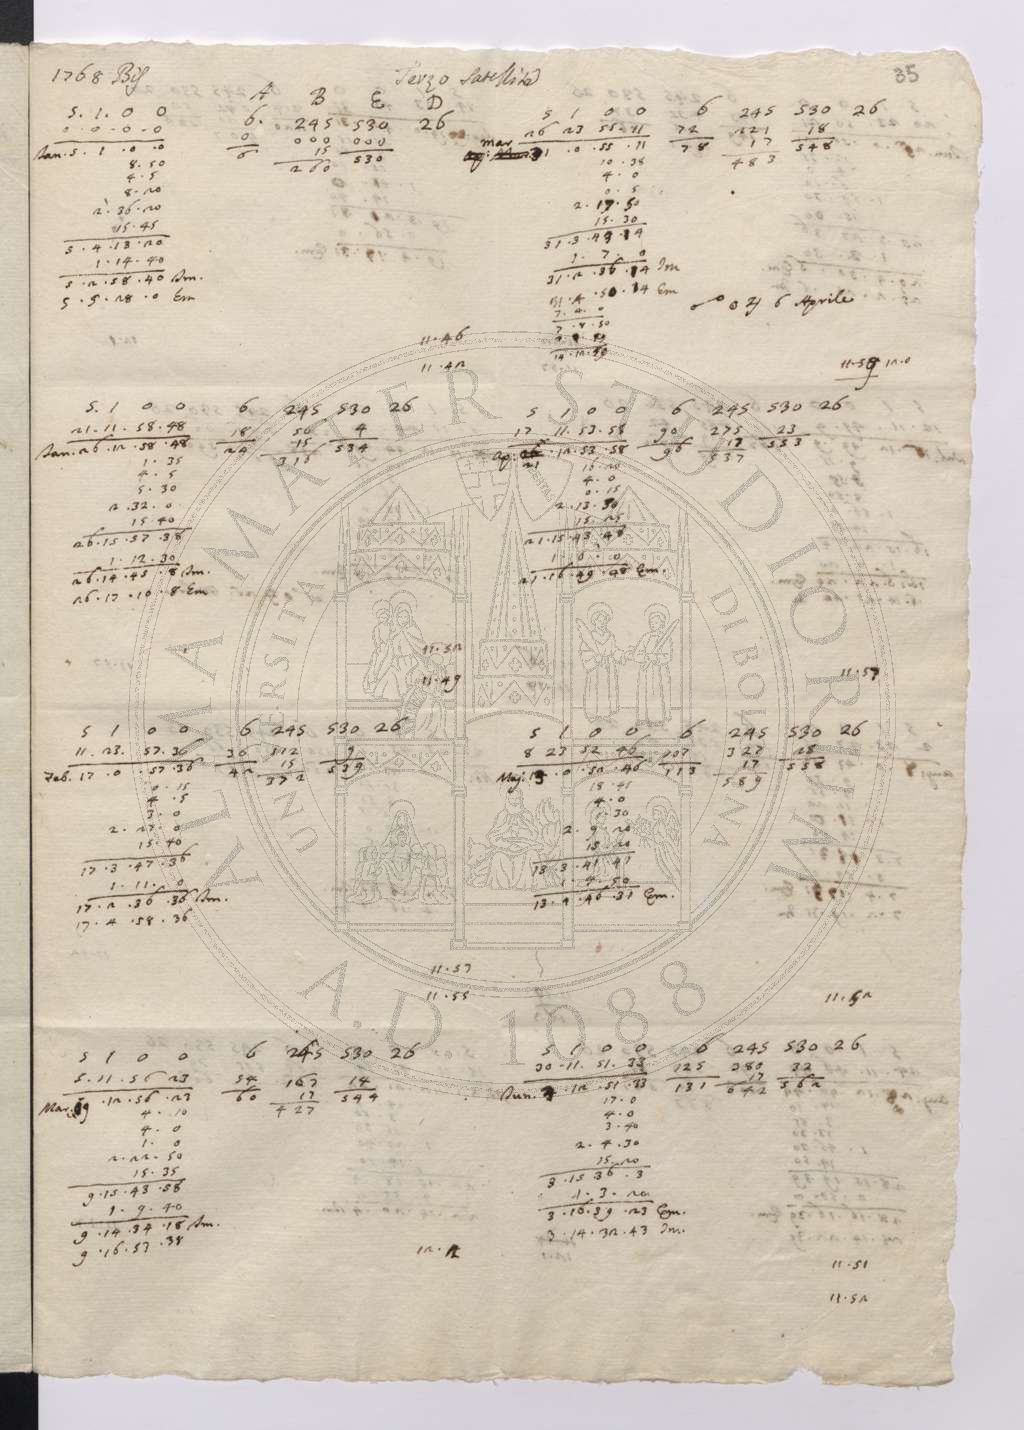 1768 Bis
Terzo Satellite
35
A B E D
5. 1. 0 0
6. 245 530 26
0. 0. 0. 0
0 000 000
Jan. 5. 1. 0. 0
6 15 530
260
8. 50
4. 5
8. 20
2. 36. 20
15. 45
5. 4. 13. 20
1. 14. 40
5. 2. 58. 40 Im.
5. 5. 28. 0 Em
11. 46
11. 42
5 1 0 0 6 245 530 26
26 23 55. 11 72 221 18
31. 0. 55. 11 78 17 548
483
10. 38
4. 0
0. 5
2. 19. 50
15. 30
1. 7. 0
31. 2. 36. 14 Im
. 50. 14 Em
6 Aprile
12. 0
5. 1 0 0 6 245 530 26
21. 11. 58. 48 18 56 4
Jan. 26. 12. 58. 48 24 15 534
316
1. 35
4. 5
5. 30
2. 32. 0
15. 40
26. 15. 57. 38
1. 12. 30
26. 14. 45. 8 Im.
26. 17. 10. 8 Em
11. 52
11. 49
5 1 0 0 6 245 530 26
17 11. 53. 58 90 275 23
Ap. 21 . 12. 53. 58 96 17 553
537
16. 20
4. 0
0. 15
2. 13. 30
15. 25
21. 15. 43. 48
1. 6. 0
21. 16. 49. 48 Em.
11. 57
5 1 0 0 6 245 530 26
11. 23. 57. 36 36 112 9
Feb. 17. 0. 57. 36 42 15 539
372
0. 15
4. 5
3. 0
2. 27. 0
15. 40
17. 3. 47. 36
1. 11. 0
17. 2. 36. 36 Im.
17. 4. 58. 36
11. 57
11. 55
5 1 0 0 6 245 530 26
8 23 52. 46 107 327 28
Maj. 13. 0. 52. 46 113 17 558
589
18. 45
4. 0
1. 30
2. 9. 20
15. 20
13 3. 41 41
1. 4. 50
13. 2. 46. 31 Em.
11. 52
5 1 0 0 6 245 530 26
5. 11. 56 23 54 167 14
Mar. 9. 12. 56. 23 60 17 544
427
4. 10
4. 0
1. 0
2. 22. 50
15. 35
9. 15. 43. 58
1. 9. 40
9. 14. 34. 18 Im.
9. 16. 53. 38
12. 2
5 1 0 0 6 245 530 26
30. 11. 51. 33 125 380 32
Jun. 3. 12. 51. 33 131 17 562
642
17. 0
4. 0
3. 40
2. 4. 30
15. 20
3. 15 36. 3
1. 3. 20
3. 16. 39. 23 Em.
3. 14. 32. 43 Im.
11. 51
11. 52
ALMA MATER STUDIORUM
UNIVERSITÀ DI BOLOGNA
A.D. 1088